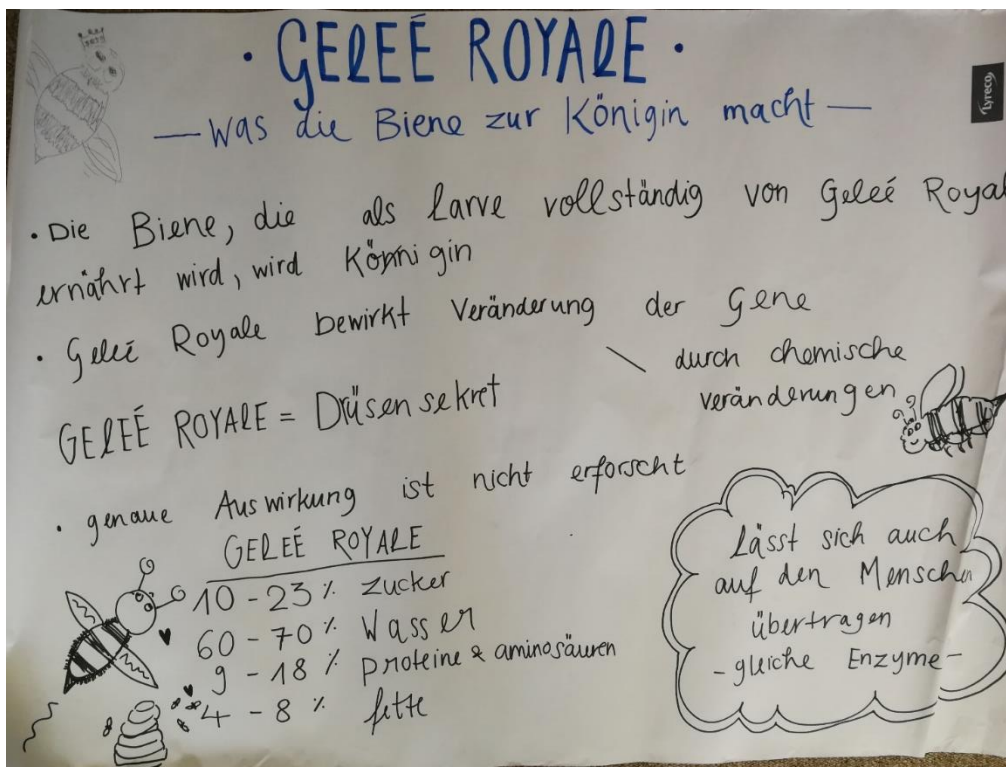 · GELEÉ ROYALE ·
— Was die Biene zur Königin macht —
Lyreco
· Die Biene, die als Larve vollständig von Geleé Royal
ernährt wird, wird Königin
· Geleé Royale bewirkt Veränderung der Gene
durch chemische
veränderungen
GELEÉ ROYALE = Drüsensekret
· genaue Auswirkung ist nicht erforscht
GELEÉ ROYALE
10 - 23 % Zucker
60 - 70 % Wasser
9 - 18 % proteine & aminosäuren
4 - 8 % fette
Lässt sich auch
auf den Menschen
übertragen
- gleiche Enzyme -